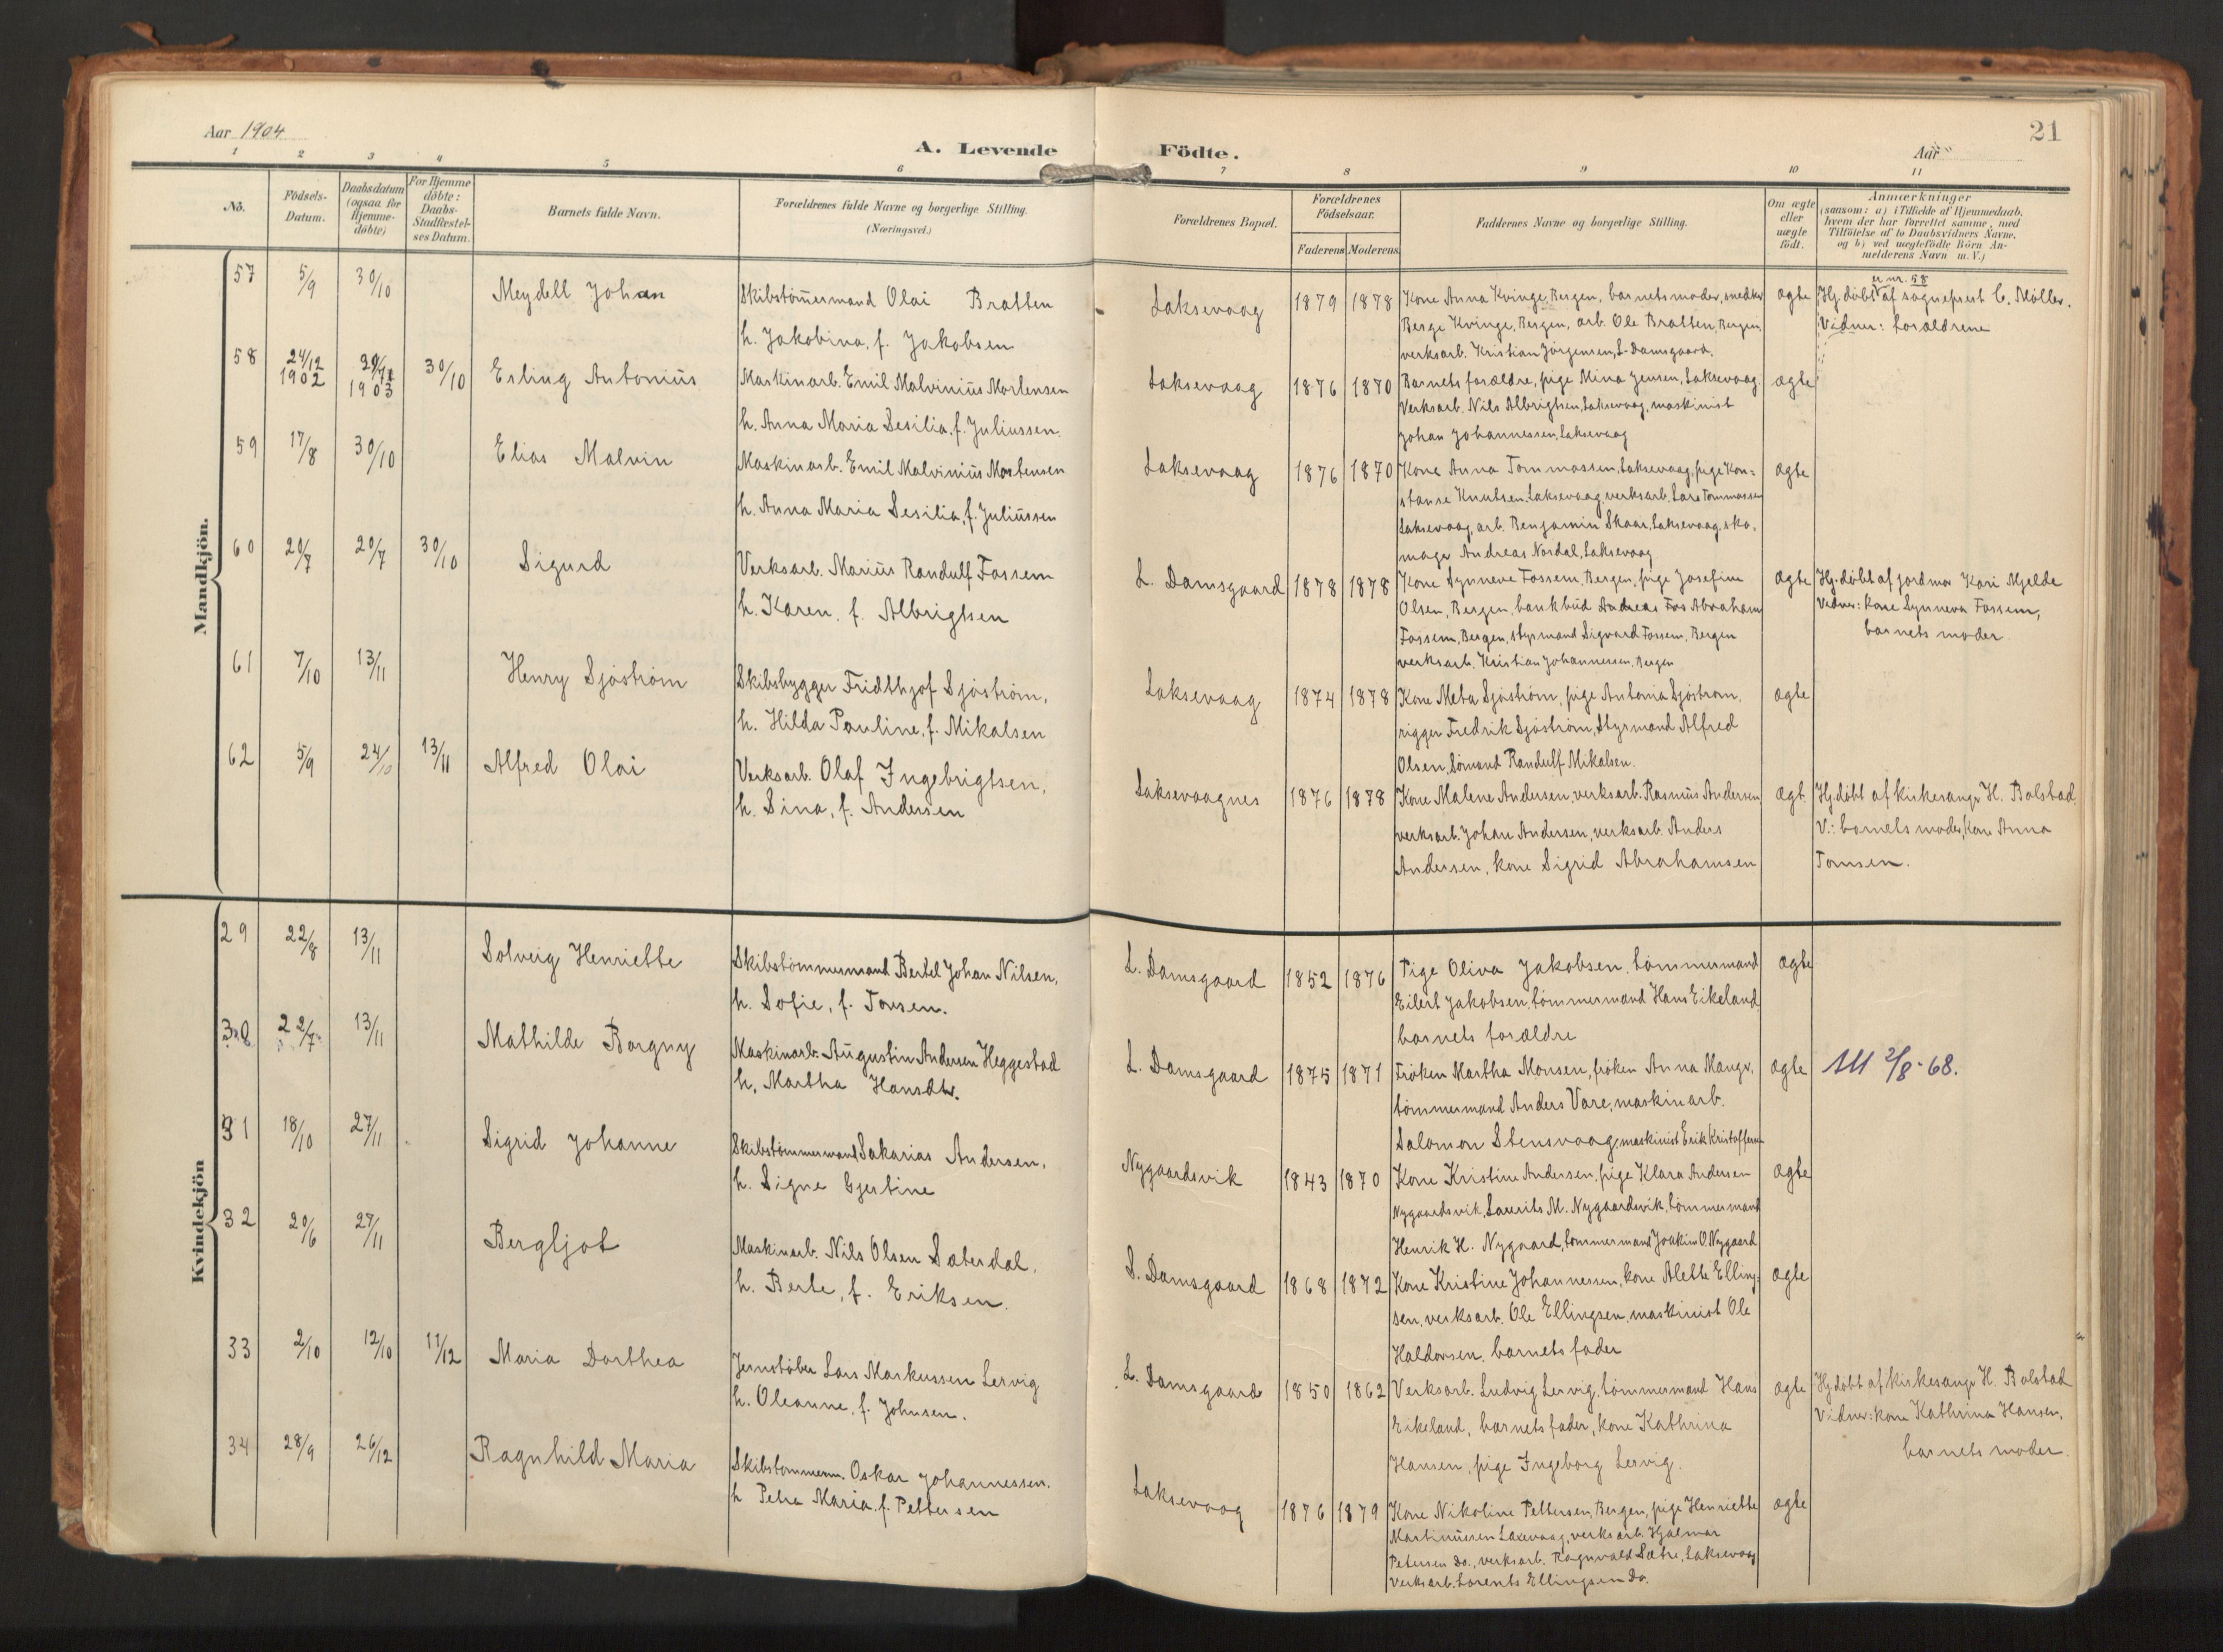 Aar 1904
A. Levende
Födte.
Aar
21
1 2 3 4 5 6 7 8 9 10 11
No.
Födsels-
Datum.
Daabsdatum
(ogsaa for
Hjemme-
döbte)
For Hjemme
döbte:
Daabs-
Stadfæstel-
ses Datum.
Barnets fulde Navn.
Forældrenes fulde Navne og borgerlige Stilling.
(Næringsvei.)
Forældrenes Bopæl.
Forældrenes
Födselsaar.
Faderens Moderens
Faddernes Navne og borgerlige Stilling.
Om ægte
eller
uægte
födt.
Anmærkninger
(saasom: a) i Tilfælde af Hjemmedaab,
hvem der har forrettet samme, med
Tilföielse af to Daabsvidners Navne,
og b) ved uægtefödte Börn An-
melderens Navn m. V.)
Mandkjön.
57 5/9 30/10 Meydell Johan
Skibstömmermand Olai Bratten
h. Jakobina, f. Jakobsen
Laksevaag 1879 1878
Kone Anna Kvinge, Bergen, barnets moder, snedker
Berge Kvinge, Bergen, arb. Ole Bratten, Bergen,
verksarb. Kristian Jörgensen, L. Damsgaard.
ægte
er nr. 58
Hj.döbt af sogneprest C. Möller.
Vidner: forældrene
58 24/12 1902 1903 30/10 Erling Antonius
Maskinarb. Emil Malvinius Mortensen
h. Anna Maria Sesilia, f. Juliussen.
Laksevaag 1876 1870
Barnets forældre, pige Mina Jensen, Laksevaag
Verksarb. Nils Albrigtsen, Laksevaag, maskinist
Johan Johannessen, Laksevaag
ægte
59 17/8 30/10 Elias Malvin
Maskinarb. Emil Malvinius Mortensen
h. Anna Maria Sesilia, f. Juliussen
Laksevaag 1876 1870
Kone Anna Tommassen, Laksevaag, pige Kon=
stanse Knutsen, Laksevaag, verksarb. Lars Tommassen
Laksevaag, arb. Benjamin Skaar, Laksevaag, sko-
mager Andreas Nordal, Laksevaag
ægte
60 20/7 20/7 30/10 Sigurd
Verksarb. Marius Randulf Fossem
h. Karen, f. Albrigtsen
L. Damsgaard 1878 1878
Kone Synneve Fossem, Bergen, pige Josefine
Olsen, Bergen, bankbud Andreas Fos Abraham
Fossem, Bergen, styrmand Sigvard Fossem, Bergen
verksarb. Kristian Johannessen, Bergen
ægte
Hj.döbt af jordmor Kari Mjelde
Vidner: kone Synneva Fossem,
barnets moder
61 7/10 13/11 Henry Sjöström
Skibsbygger Fridthjof Sjöström,
h. Hilda Pauline, f. Mikalsen
Laksevaag 1874 1878
Kone Meta Sjöström, pige Antonia Sjöström,
rigger Fredrik Sjöström, Styrmand Alfred
Olsen, Sömand Randulf Mikalsen.
ægte
62 5/9 24/10 13/11 Alfred Olai
Verksarb. Olaf Ingebrigtsen,
h. Sina, f. Andersen
Laksevaagnes 1876 1878
Kone Malene Andersen, verksarb. Rasmus Andersen
verksarb. Johan Andersen, verksarb. Anders
Andersen, kone Sigrid Abrahamsen
ægt.
Hj.döbt af kirkesanger H. Bolstad.
V.: barnets moder, Kone Anna
Tomsen.
Kvindekjön
29 22/8 13/11 Solveig Henriette
Skibstömmermand Bertel Johan Nilsen,
h. Sofie, f. Tonsen.
L. Damsgaard 1852 1876
Pige Oliva Jakobsen, tömmermand
Eilert Jakobsen, tömmermand Hans Eikeland
barnets forældre
ægte
30 22/7 13/11 Mathilde Borgny
Maskinarb. Augustin Andersen Heggestad
h. Martha Hansdtr.
L. Damsgaard 1875 1871
Fröken Martha Monsen, fröken Anna Manger,
tömmermand Anders Vare, maskinarb.
Salomon Stensvaag, maskinist Erik Kristoffersen
ægte
Att 2/8-68.
31 18/10 27/11 Sigrid Johanne
Skibstömmermand Sakarias Andersen,
h. Signe Gjertine
Nygaardsvik 1843 1870
Kone Kristine Andersen, pige Klara Andersen
Nygaardsvik, Laurits M. Nygaardsvik, tömmermand
Henrik H. Nygaard, tömmermand Joakim O. Nygaard
ægte
32 20/6 27/11 Bergljot
Maskinarb. Nils Olsen Satersdal,
h. Berte, f. Eriksen.
S. Damsgaard 1868 1872
Kone Kristine Johannessen, kone Alette Elling-
sen, verksarb. Ole Ellingsen, maskinist Ole
Haldorsen, barnets fader
ægte
33 2/10 12/10 11/12 Maria Dorthea
Jernstöber Lars Markussen Lervig
h. Oleanne, f. Johnsen.
L. Damsgaard 1850 1862
Verksarb. Ludvig Lervig, tömmermand Hans
Eikeland, barnets fader, kone Kathrina
Hansen, pige Ingeborg Lervig.
ægte
Hj.döbt af kirkesanger H. Bolstad
Vidner: kone Kathrina Hansen,
barnets moder.
34 28/9 26/12 Ragnhild Maria
Skibstömmerm. Oskar Johannessen.
h Petra Maria, f. Pettersen
Laksevaag 1876 1879
Kone Nikoline Pettersen, Bergen, pige Henriette
Martinussen Laxevaag, verksarb. Hjalmar
Petersen Do., verksarb. Ragnvald Sætre, Laksevaag
Verksarb. Lorents Ellingsen Do.
ægte